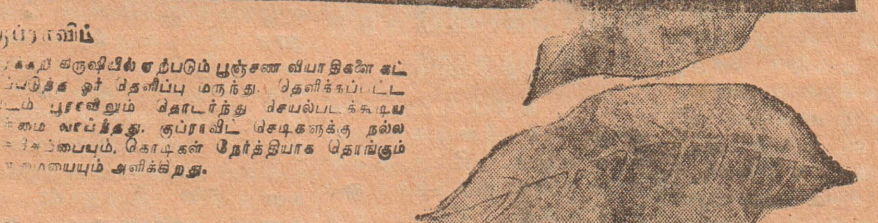 குப்ராவிட்
கிருஷியில் ஏற்படும் பூஞ்சண வியாதிகளை கட்
ஓர் தெளிப்பு மருந்து. தெளிக்கப்பட்ட
பூராவிலும் தொடர்ந்து செயல்படக்கூடிய
வாய்ந்தது. குப்ராவிட் செடிகளுக்கு நல்ல
கொடிகள் நேர்த்தியாக தொங்கும்
அளிக்கிறது.